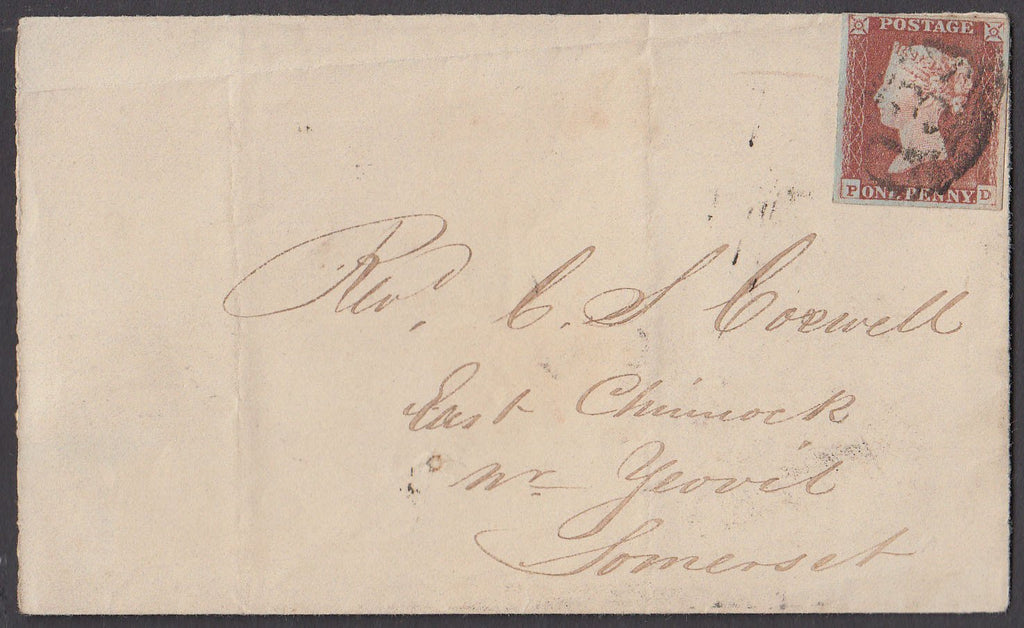 POSTAGE
P ONE PENNY. D
Rev.d C. S Coxwell
East Chinnock
Nr Yeovil
Somerset